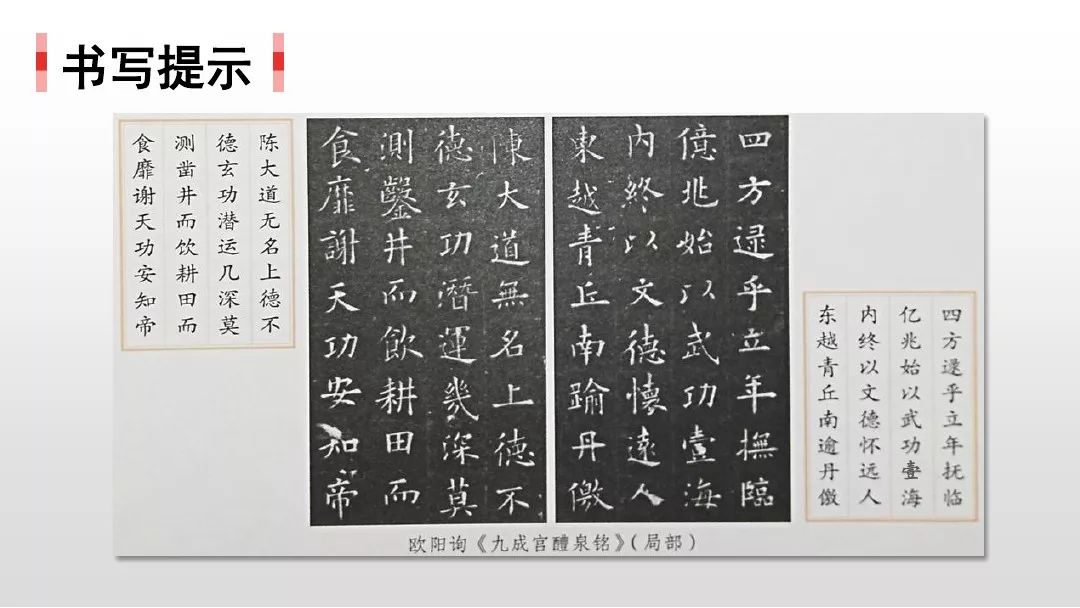 书写提示
四方逯乎立年抚临
亿兆始以武功壹海
内终以文德怀远人
东越青丘南逾丹儌
四方逯乎立年撫臨
億兆始以武功壹海
内終以文德懷遠人
東越青丘南踰丹儌
陳大道無名上德不
德玄功潛運幾深莫
測鑿井而飲耕田而
食靡謝天功安知帝
陈大道无名上德不
德玄功潜运几深莫
测凿井而饮耕田而
食靡谢天功安知帝
欧阳询《九成宫醴泉铭》(局部)